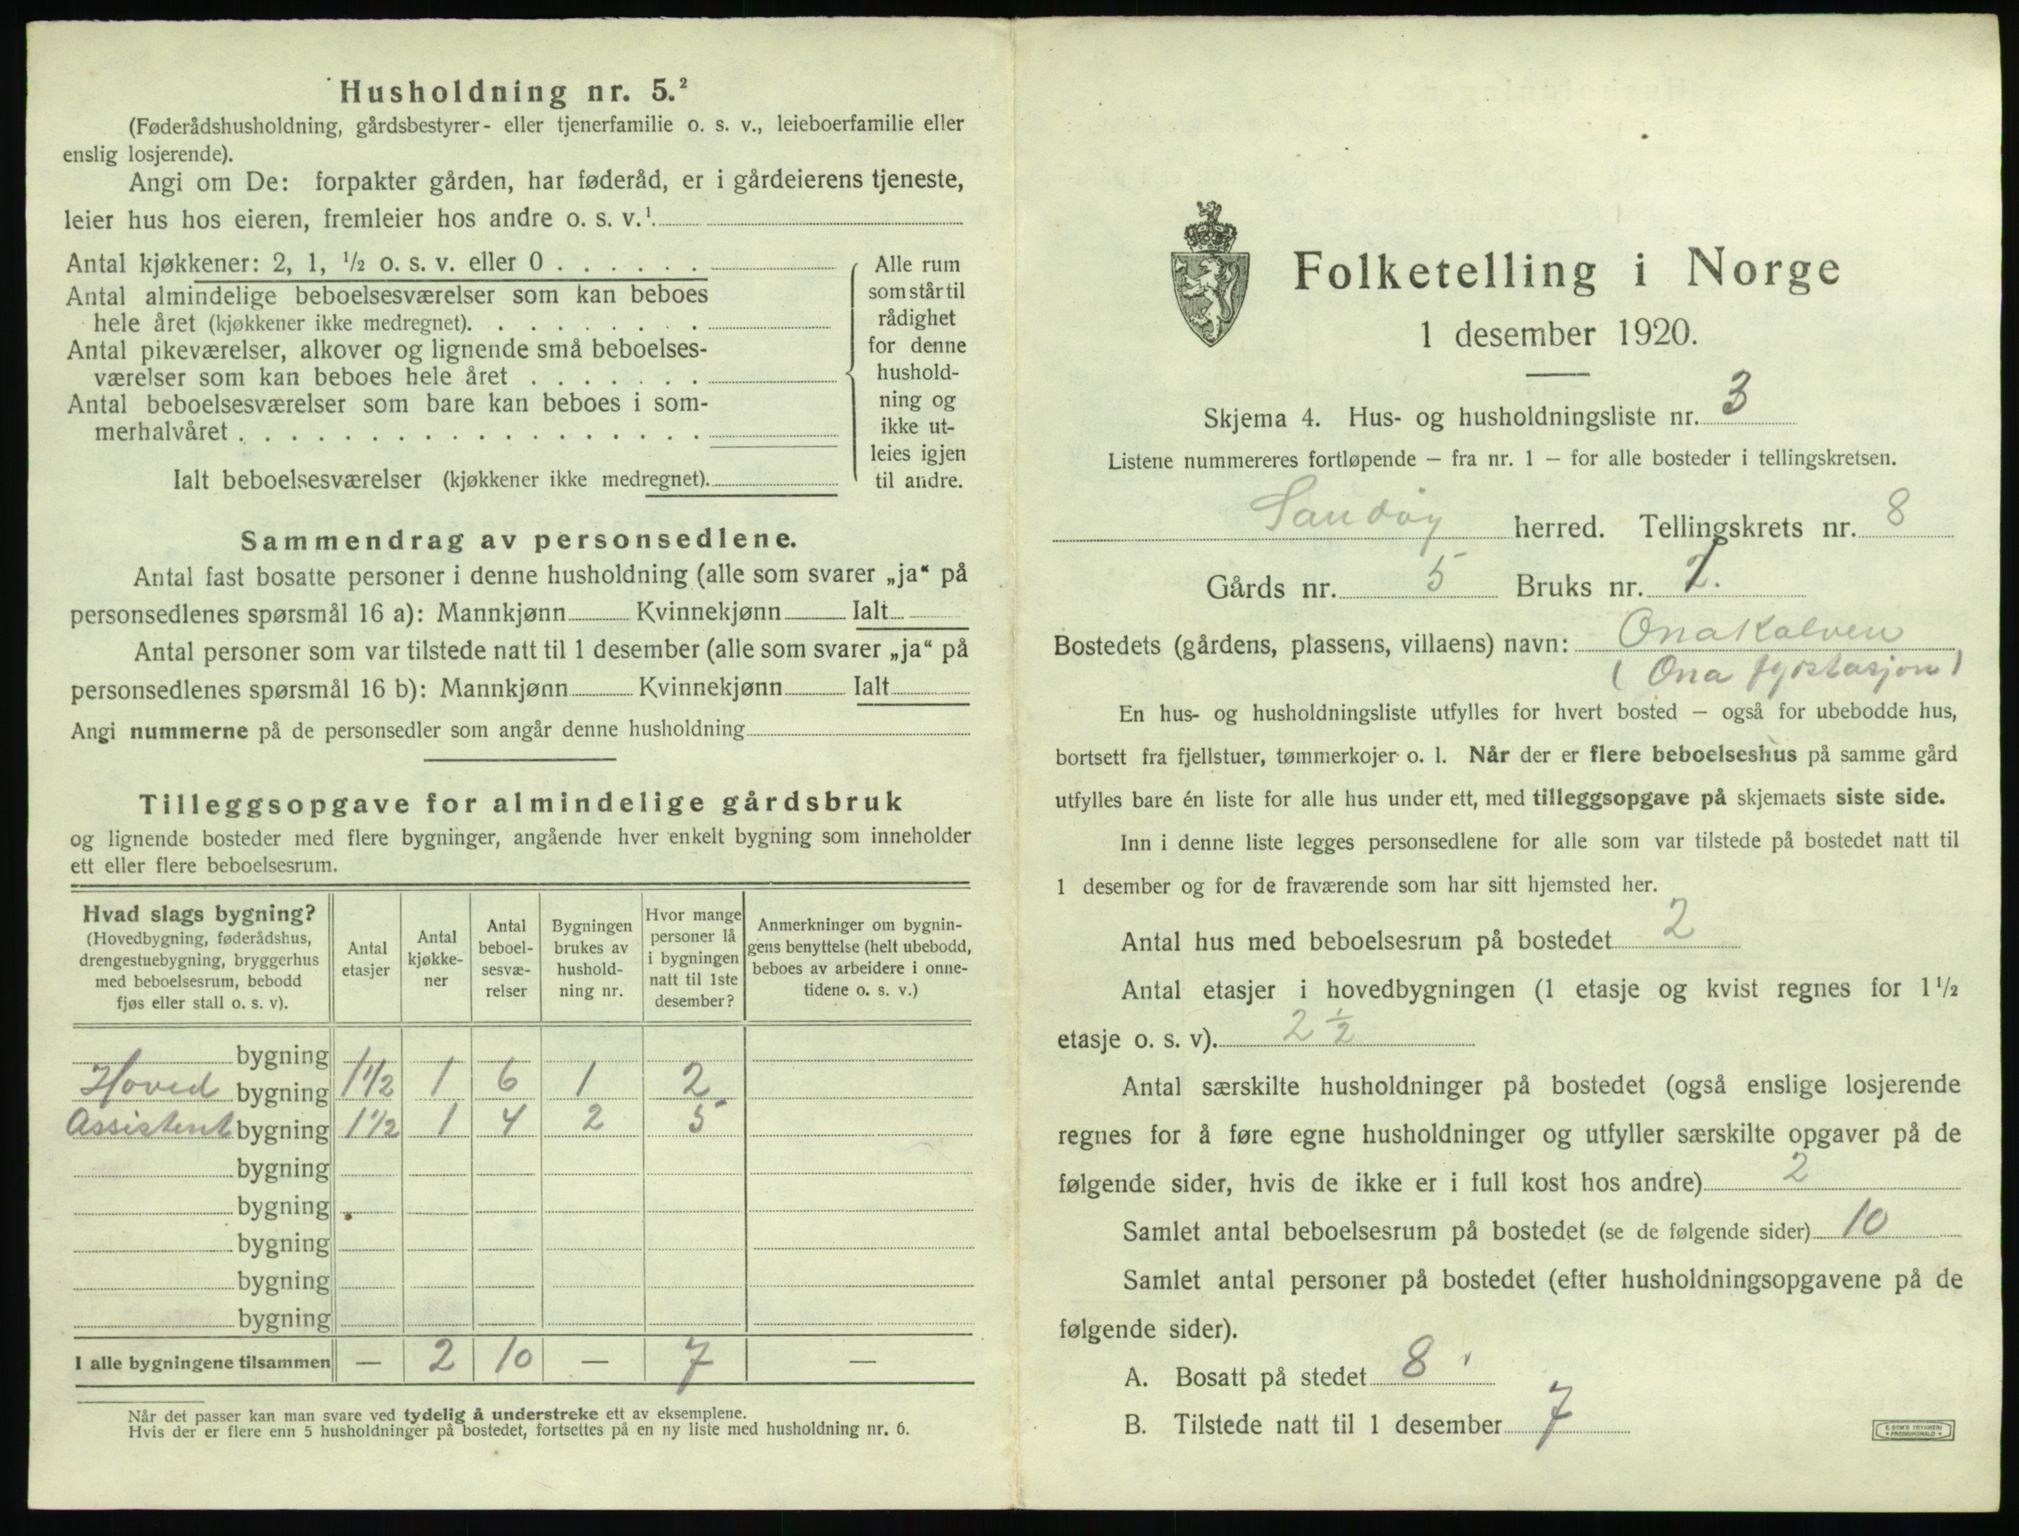 Husholdning nr. 5.²
(Føderådshusholdning, gårdsbestyrer- eller tjenerfamilie o. s. v., leieboerfamilie eller
enslig losjerende).
Angi om De: forpakter gården, har føderåd, er i gårdeierens tjeneste,
leier hus hos eieren, fremleier hos andre o. s. v.¹
Antal kjøkkener: 2, 1, ½ o. s. v. eller 0 . . . . . .
Antal almindelige beboelsesværelser som kan beboes
hele året (kjøkkener ikke medregnet). . . . . . . . .
Antal pikeværelser, alkover og lignende små beboelses-
værelser som kan beboes hele året . . . . . . .
Antal beboelsesværelser som bare kan beboes i som-
merhalvåret . . . . . . . . . . . . . . . . . .
Ialt beboelsesværelser (kjøkkener ikke medregnet).
Alle rum
som står til
rådighet
for denne
hushold-
ning og
ikke ut-
leies igjen
til andre.
Sammendrag av personsedlene.
Antal fast bosatte personer i denne husholdning (alle som svarer „ja“ på
personsedlenes spørsmål 16 a): Mannkjønn Kvinnekjønn Ialt
Antal personer som var tilstede natt til 1 desember (alle som svarer „ja“ på
personsedlenes spørsmål 16 b): Mannkjønn Kvinnekjønn Ialt
Angi nummerne på de personsedler som angår denne husholdning
Tilleggsopgave for almindelige gårdsbruk
og lignende bosteder med flere bygninger, angående hver enkelt bygning som inneholder
ett eller flere beboelsesrum.
Hvad slags bygning?
(Hovedbygning, føderådshus,
drengestuebygning, bryggerhus
med beboelsesrum, bebodd
fjøs eller stall o. s. v).
Antal
etasjer
Antal
kjøkke-
ner
Antal
beboel-
sesvæ-
relser
Bygningen
brukes av
hushold-
ning nr.
Hvor mange
personer lå
i bygningen
natt til 1ste
desember?
Anmerkninger om bygnin-
gens benyttelse (helt ubebodd,
beboes av arbeidere i onne-
tidene o. s. v.)
bygning
Hoved bygning 1½ 1 6 1 2
Assistent bygning 1½ 1 4 2 5
bygning
bygning
bygning
bygning
bygning
I alle bygningene tilsammen — 2 10 — 7 —
Når det passer kan man svare ved tydelig å understreke ett av eksemplene.
Hvis der er flere enn 5 husholdninger på bostedet, fortsettes på en ny liste med husholdning nr. 6.
Folketelling i Norge
1 desember 1920.
Skjema 4. Hus- og husholdningsliste nr. 3
Listene nummereres fortløpende — fra nr. 1 — for alle bosteder i tellingskretsen.
Sandøy herred. Tellingskrets nr. 8
Gårds nr. 5 Bruks nr. 2.
Bostedets (gårdens, plassens, villaens) navn: Onakalven
( Ona fyrstasjon )
En hus- og husholdningsliste utfylles for hvert bosted — også for ubebodde hus,
bortsett fra fjellstuer, tømmerkojer o. l. Når der er flere beboelseshus på samme gård
utfylles bare én liste for alle hus under ett, med tilleggsopgave på skjemaets siste side.
Inn i denne liste legges personsedlene for alle som var tilstede på bostedet natt til
1 desember og for de fraværende som har sitt hjemsted her.
Antal hus med beboelsesrum på bostedet 2
Antal etasjer i hovedbygningen (1 etasje og kvist regnes for 1½
etasje o. s. v). 2½
Antal særskilte husholdninger på bostedet (også enslige losjerende
regnes for å føre egne husholdninger og utfyller særskilte opgaver på de
følgende sider, hvis de ikke er i full kost hos andre) 2
Samlet antal beboelsesrum på bostedet (se de følgende sider) 10
Samlet antal personer på bostedet (efter husholdningsopgavene på de
følgende sider).
A. Bosatt på stedet 8
B. Tilstede natt til 1 desember 7